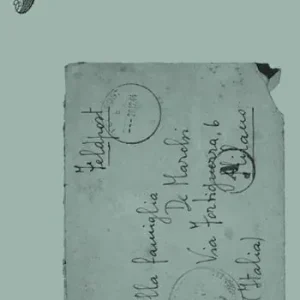 Feldpost
alla famiglia
De Marchi
Via Fortiguerra, 6
Milano
(Italia)